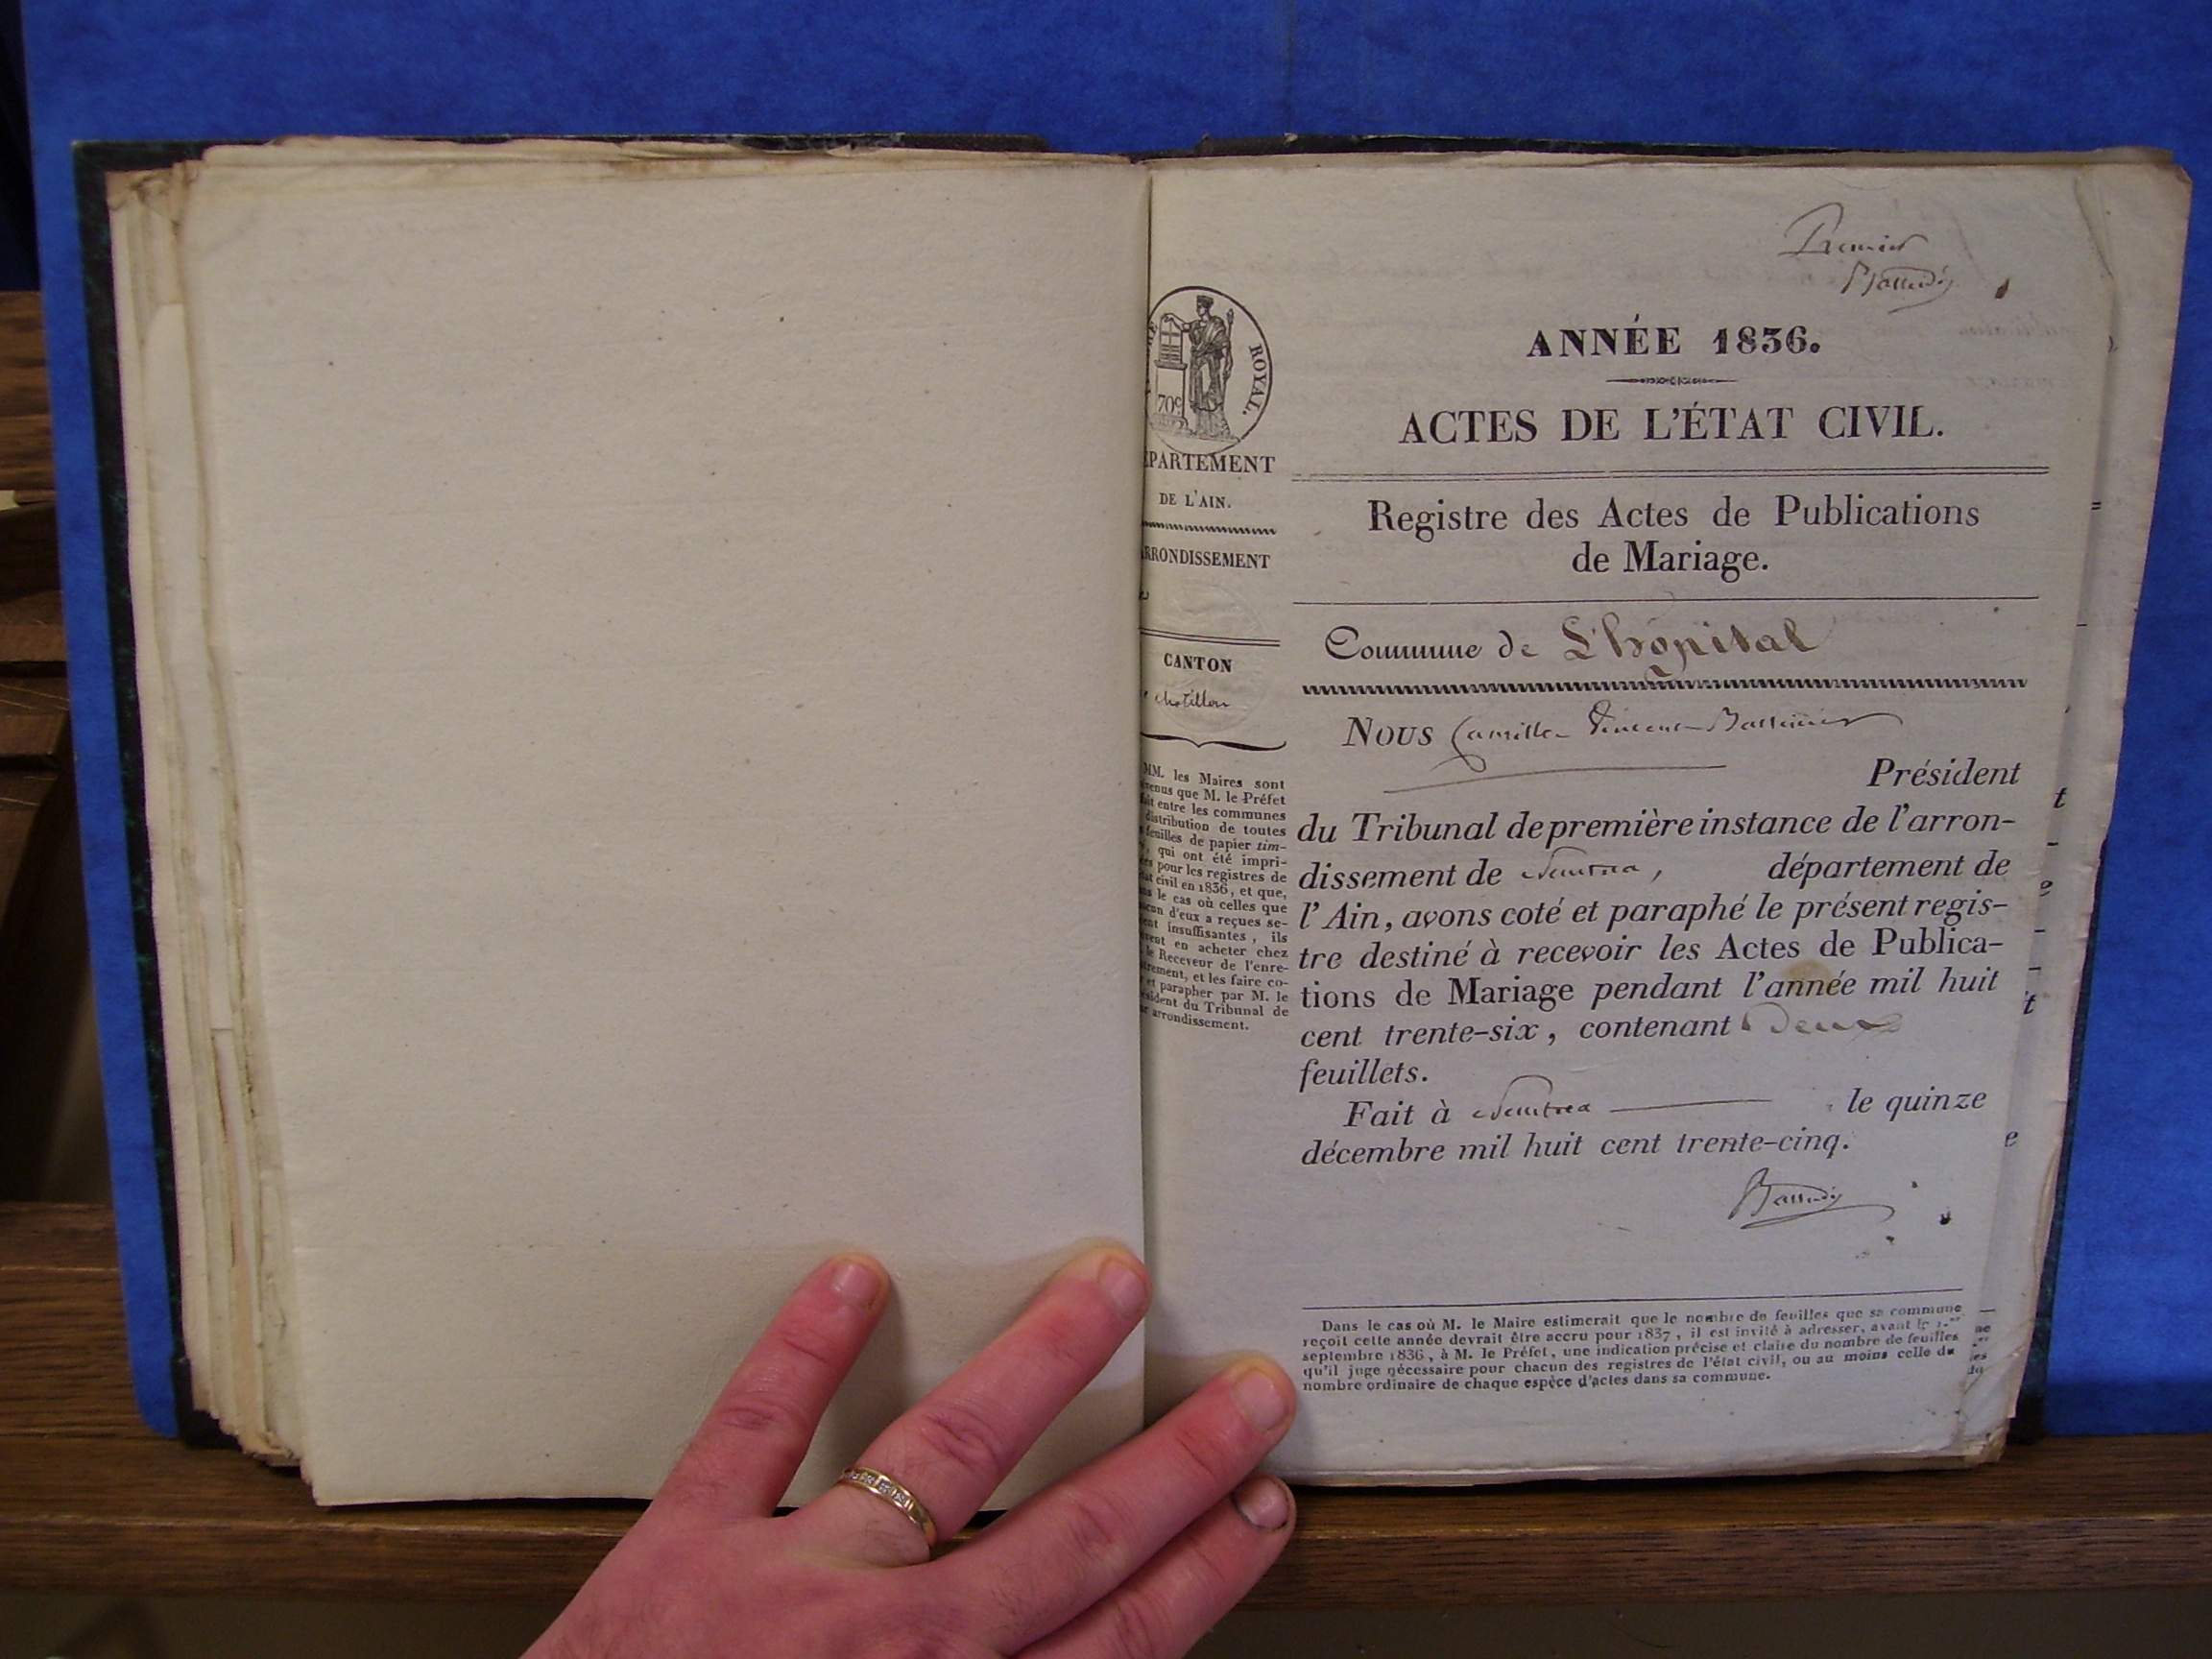 Premier
ANNÉE 1836.
ACTES DE L'ÉTAT CIVIL.
Registre des Actes de Publications
de Mariage.
Commune de L'hôpital
Nous Camille Vincent
Président
du Tribunal de première instance de l'arron-
dissement de Nantua, département de
l'Ain, avons coté et paraphé le présent regis-
tre destiné à recevoir les Actes de Publica-
tions de Mariage pendant l'année mil huit
cent trente-six, contenant Deux
feuillets.
Fait à Nantua le quinze
décembre mil huit cent trente-cinq.
Dans le cas où M. le Maire estimerait que le nombre de feuilles que sa commune
reçoit cette année devrait être accru pour 1837, il est invité à adresser, avant le 1.er
septembre 1836, à M. le Préfet, une indication précise et claire du nombre de feuilles
qu'il juge nécessaire pour chacun des registres de l'état civil, ou au moins celle du
nombre ordinaire de chaque espèce d'actes dans sa commune.
ROYAL.
70c
PARTEMENT
DE L'AIN.
RRONDISSEMENT
CANTON
Chatillon
MM. les Maires sont
enus que M. le Préfet
it entre les communes
distribution de toutes
feuilles de papier tim-
, qui ont été impri-
es pour les registres de
at civil en 1836, et que,
ns le cas où celles que
acun d'eux a reçues se-
ent insuffisantes, ils
vent en acheter chez
le Receveur de l'enre-
trement, et les faire co-
et parapher par M. le
ésident du Tribunal de
r arrondissement.